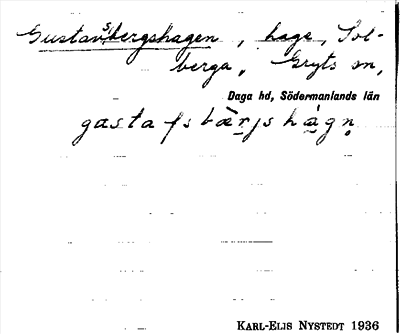 Gustavsbergshagen, hage, Sol-
berga, Gryts sn,
Daga hd, Södermanlands län
gastafsbàrjshàgn
KARL-ELIS NYSTEDT 1936